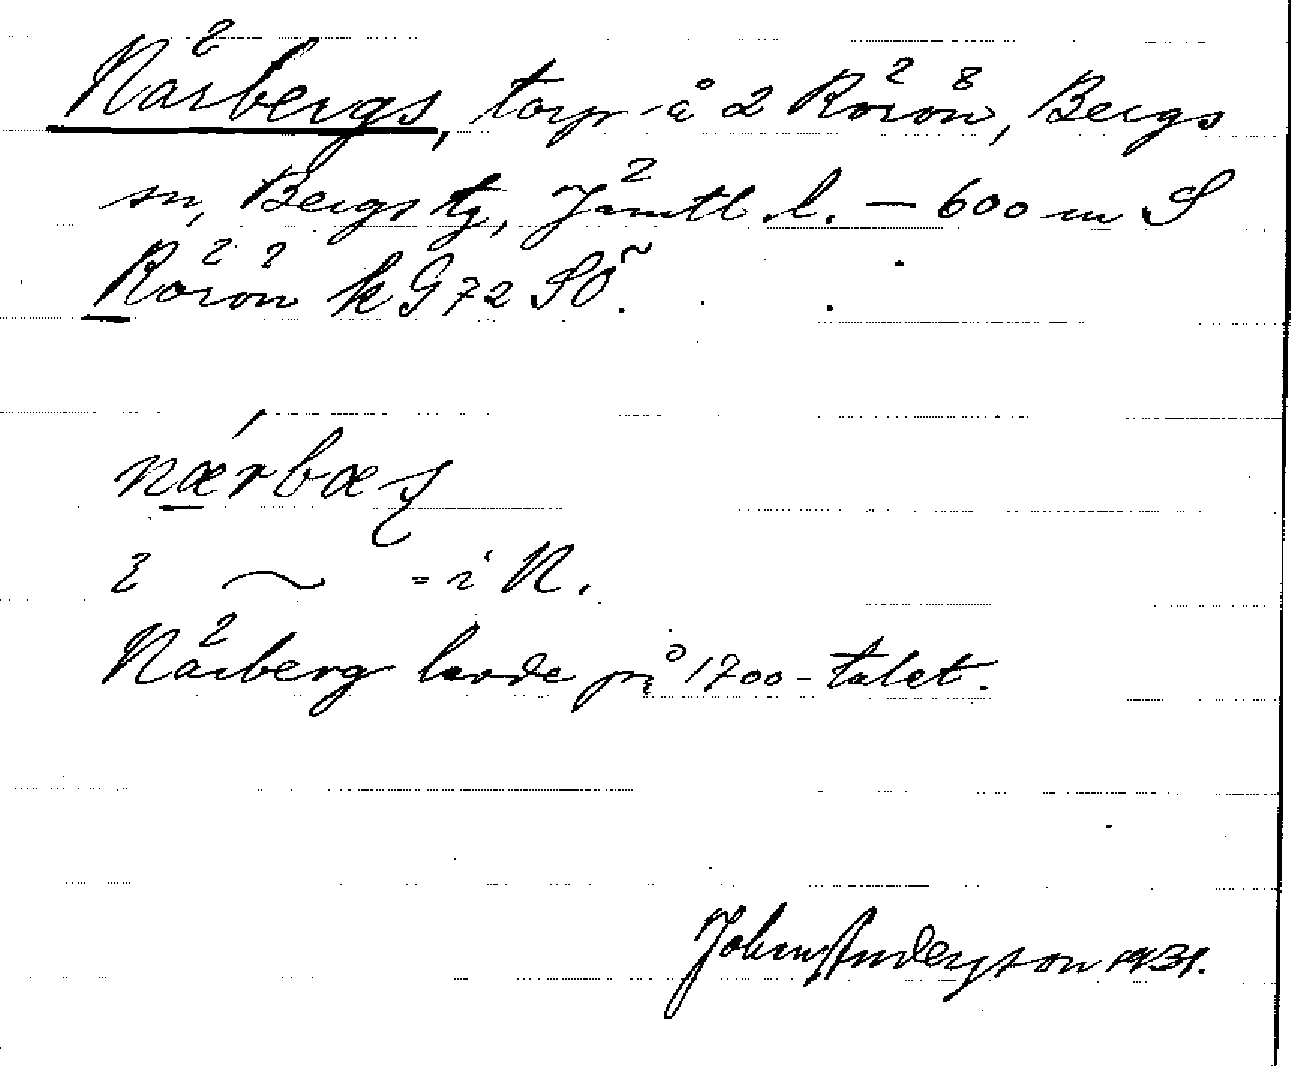 Närbergs, torp å 2 Rörön, Bergs
sn, Bergs tg, Jämtl. l. – 600 m S
Rörön k G 72 SÖ.
nærbæʂ
2 ~ - i N.
Närberg levde på 1700-talet.
Johan Anderson 1931.